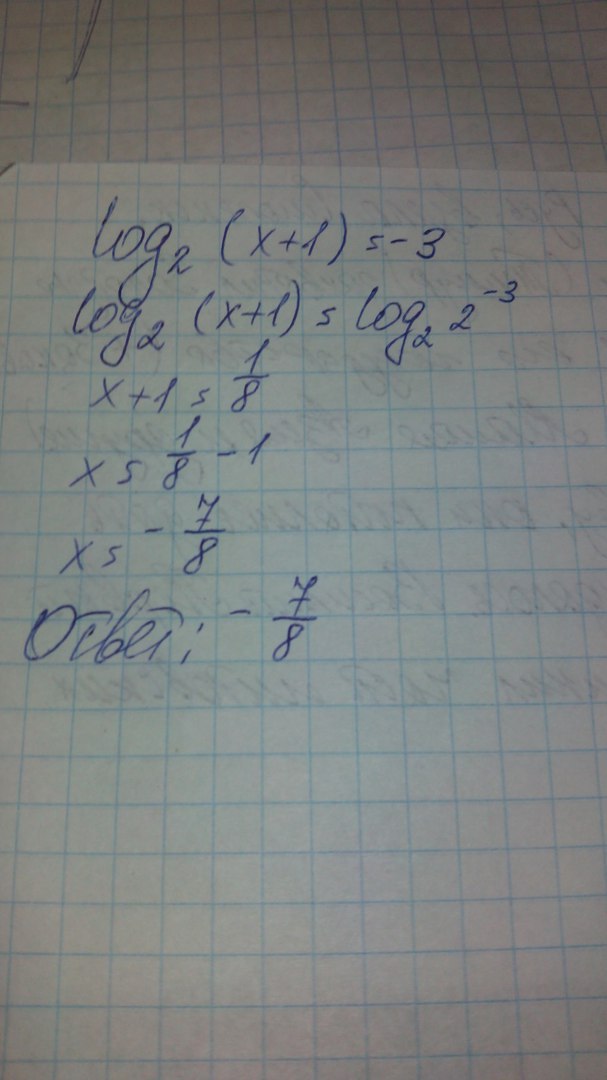 log₂ (x+1) = -3
log₂ (x+1) = log₂ 2⁻³
x+1 = 1/8
x = 1/8 - 1
x = - 7/8
Ответ: - 7/8